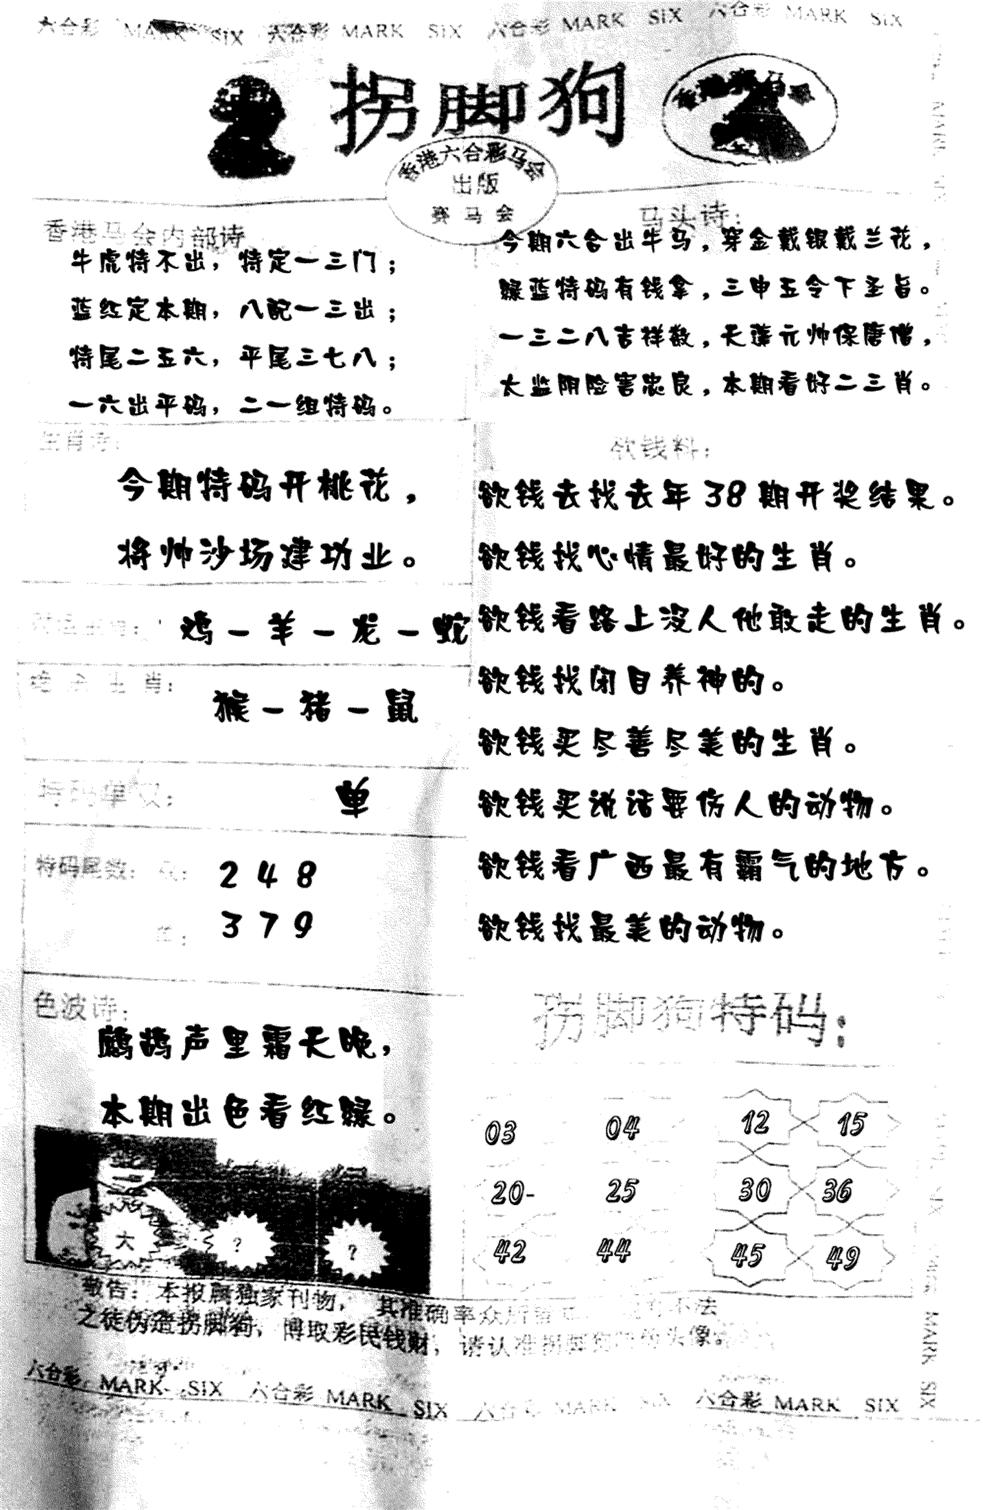 六合彩 MARK SIX 六合彩 MARK SIX 六合彩 MARK SIX 六合彩 MARK SIX
拐脚狗
香港六合彩马会
出版
赛马会
香港赛马会
香港马会内部诗
牛虎特不出，特定一三门；
蓝红定本期，八配一三出；
特尾二五六，平尾三七八；
一六出平码，二一组特码。
马头诗：
今期六合出牛马，穿金戴银戴兰花，
绿蓝特码有钱拿，三申五令下圣旨。
一三二八吉祥数，天蓬元帅保唐僧，
太监阴险害忠良，本期看好二三肖。
生肖诗：
今期特码开桃花，
将帅沙场建功业。
鸡－羊－龙－蛇
绝杀生肖：
猴－猪－鼠
特码单双：
单
特码尾数：双：
2 4 8
单：
3 7 9
欲钱料：
欲钱去找去年38期开奖结果。
欲钱找心情最好的生肖。
欲钱看路上没人他敢走的生肖。
欲钱找闭目养神的。
欲钱买尽善尽美的生肖。
欲钱买说话要伤人的动物。
欲钱看广西最有霸气的地方。
欲钱找最美的动物。
色波诗：
鹧鸪声里霜天晚，
本期出色看红绿。
大 ? ?
拐脚狗特码：
03 04 12 15
20- 25 30 36
42 44 45 49
敬告：本报属独家刊物，其准确率众所 不法
之徒伪造拐脚狗，博取彩民钱财，请认准拐脚狗 头像
六合彩 MARK SIX 六合彩 MARK SIX 六合彩 MARK SIX 六合彩 MARK SIX
MARK SIX